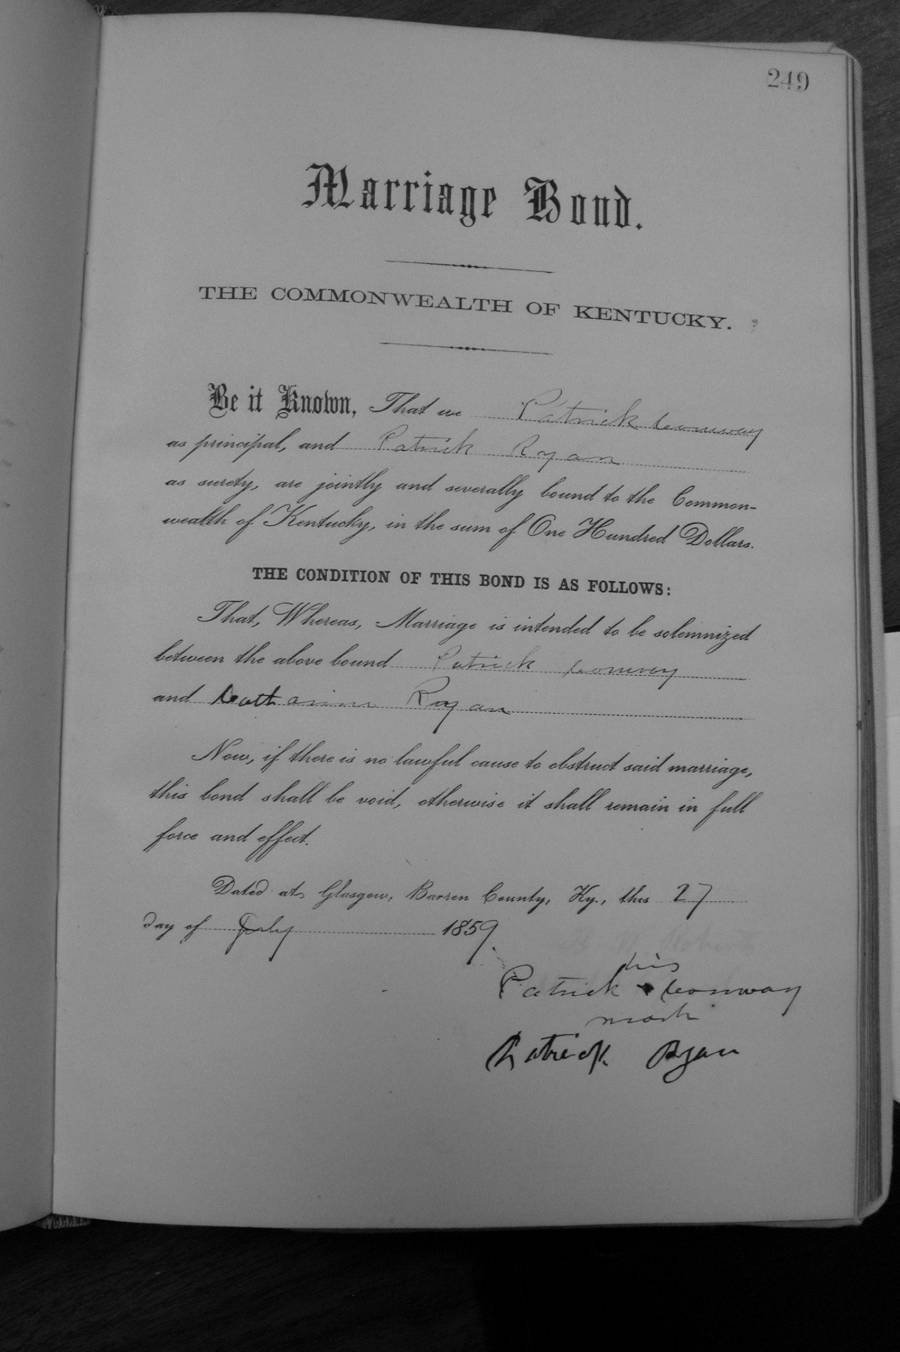 249
Marriage Bond.
THE COMMONWEALTH OF KENTUCKY.
Be it Known, That we Patrick Conway
as principal, and Patrick Ryan
as surety, are jointly and severally bound to the Common-
wealth of Kentucky, in the sum of One Hundred Dollars.
THE CONDITION OF THIS BOND IS AS FOLLOWS:
That, Whereas, Marriage is intended to be solemnized
between the above bound Patrick Conway
and Catharine Ryan
Now, if there is no lawful cause to obstruct said marriage,
this bond shall be void, otherwise it shall remain in full
force and effect.
Dated at Glasgow, Barren County, Ky., this 27
day of July 1859.
his
Patrick Conway
mark
Patrick Ryan